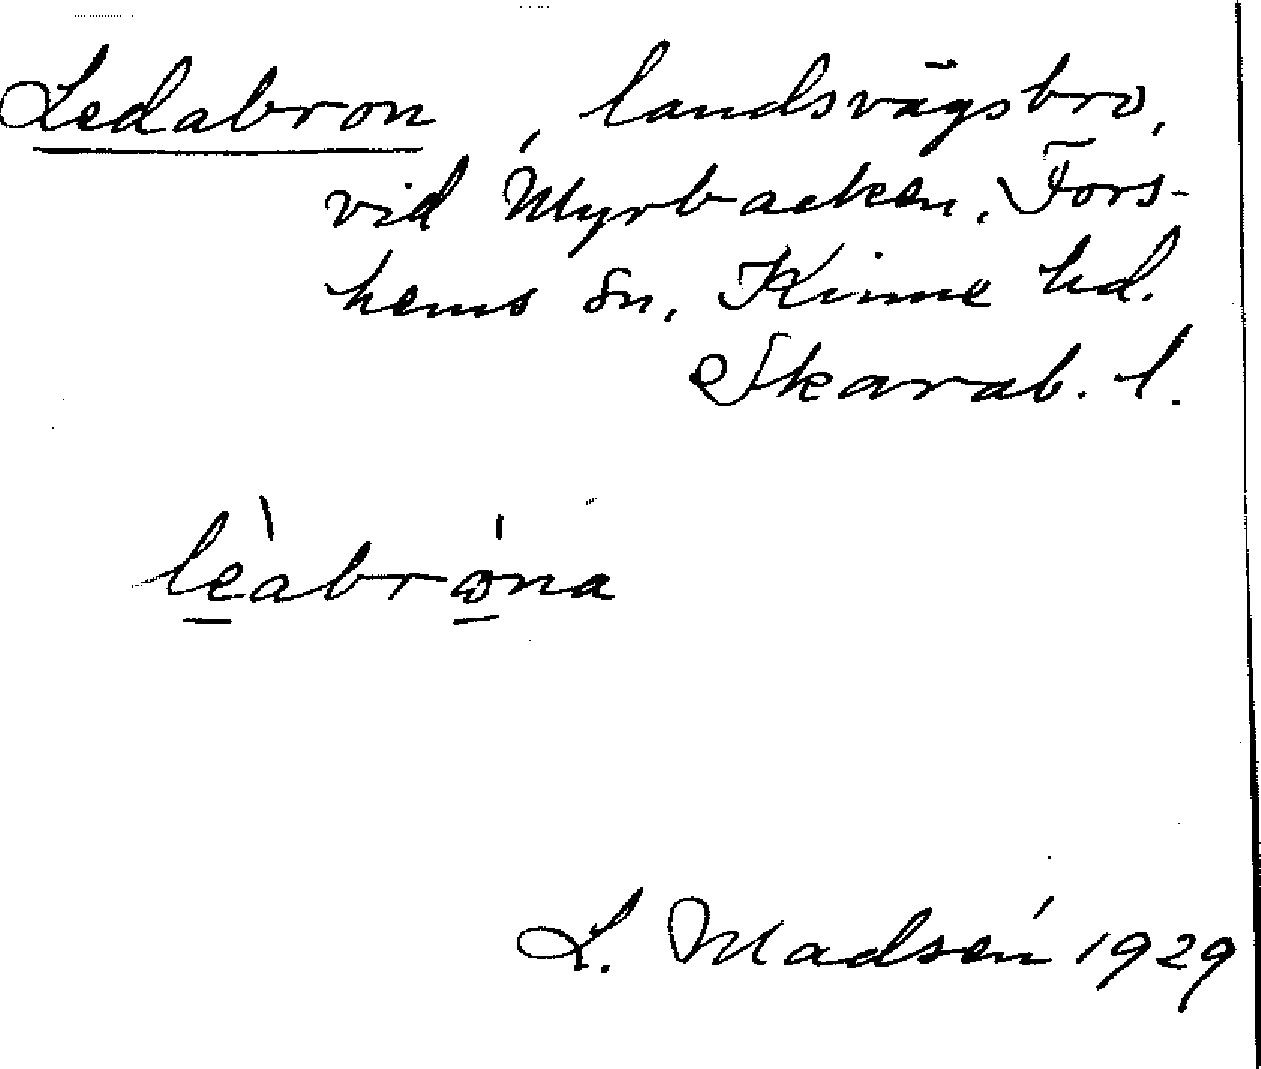 Ledabron, landsvägsbro,
vid Myrbacken, Fors-
hems sn, Kinne hd.
Skarab. l.
lèabrøna
L. Madsén 1929